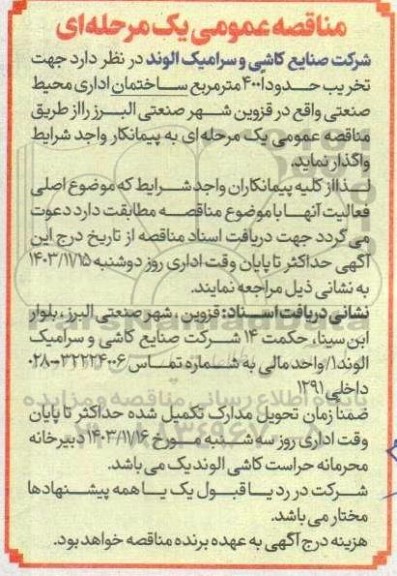 مناقصه عمومی یک مرحله‌ای
شرکت صنایع کاشی و سرامیک الوند در نظر دارد جهت
تخریب حدودا ۴۰۰ مترمربع ساختمان اداری محیط
صنعتی واقع در قزوین شهر صنعتی البرز را از طریق
مناقصه عمومی یک مرحله ای به پیمانکار واجد شرایط
واگذار نماید.
لذا از کلیه پیمانکاران واجد شرایط که موضوع اصلی
فعالیت آنها با موضوع مناقصه مطابقت دارد دعوت
می گردد جهت دریافت اسناد مناقصه از تاریخ درج این
آگهی حداکثر تا پایان وقت اداری روز دوشنبه ۱۴۰۳/۱۱/۱۵
به نشانی ذیل مراجعه نمایند.
نشانی دریافت اسناد: قزوین ، شهر صنعتی البرز ، بلوار
ابن سینا، حکمت ۱۴ شرکت صنایع کاشی و سرامیک
الوند۱/ واحد مالی به شماره تماس ۳۲۲۲۴۰۰۶-۰۲۸
داخلی ۱۲۹۱
ضمنا زمان تحویل مدارک تکمیل شده حداکثر تا پایان
وقت اداری روز سه شنبه مورخ ۱۴۰۳/۱۱/۱۶ دبیرخانه
محرمانه حراست کاشی الوند یک می باشد.
شرکت در رد یا قبول یک یا همه پیشنهادها
مختار می باشد.
هزینه درج آگهی به عهده برنده مناقصه خواهد بود.